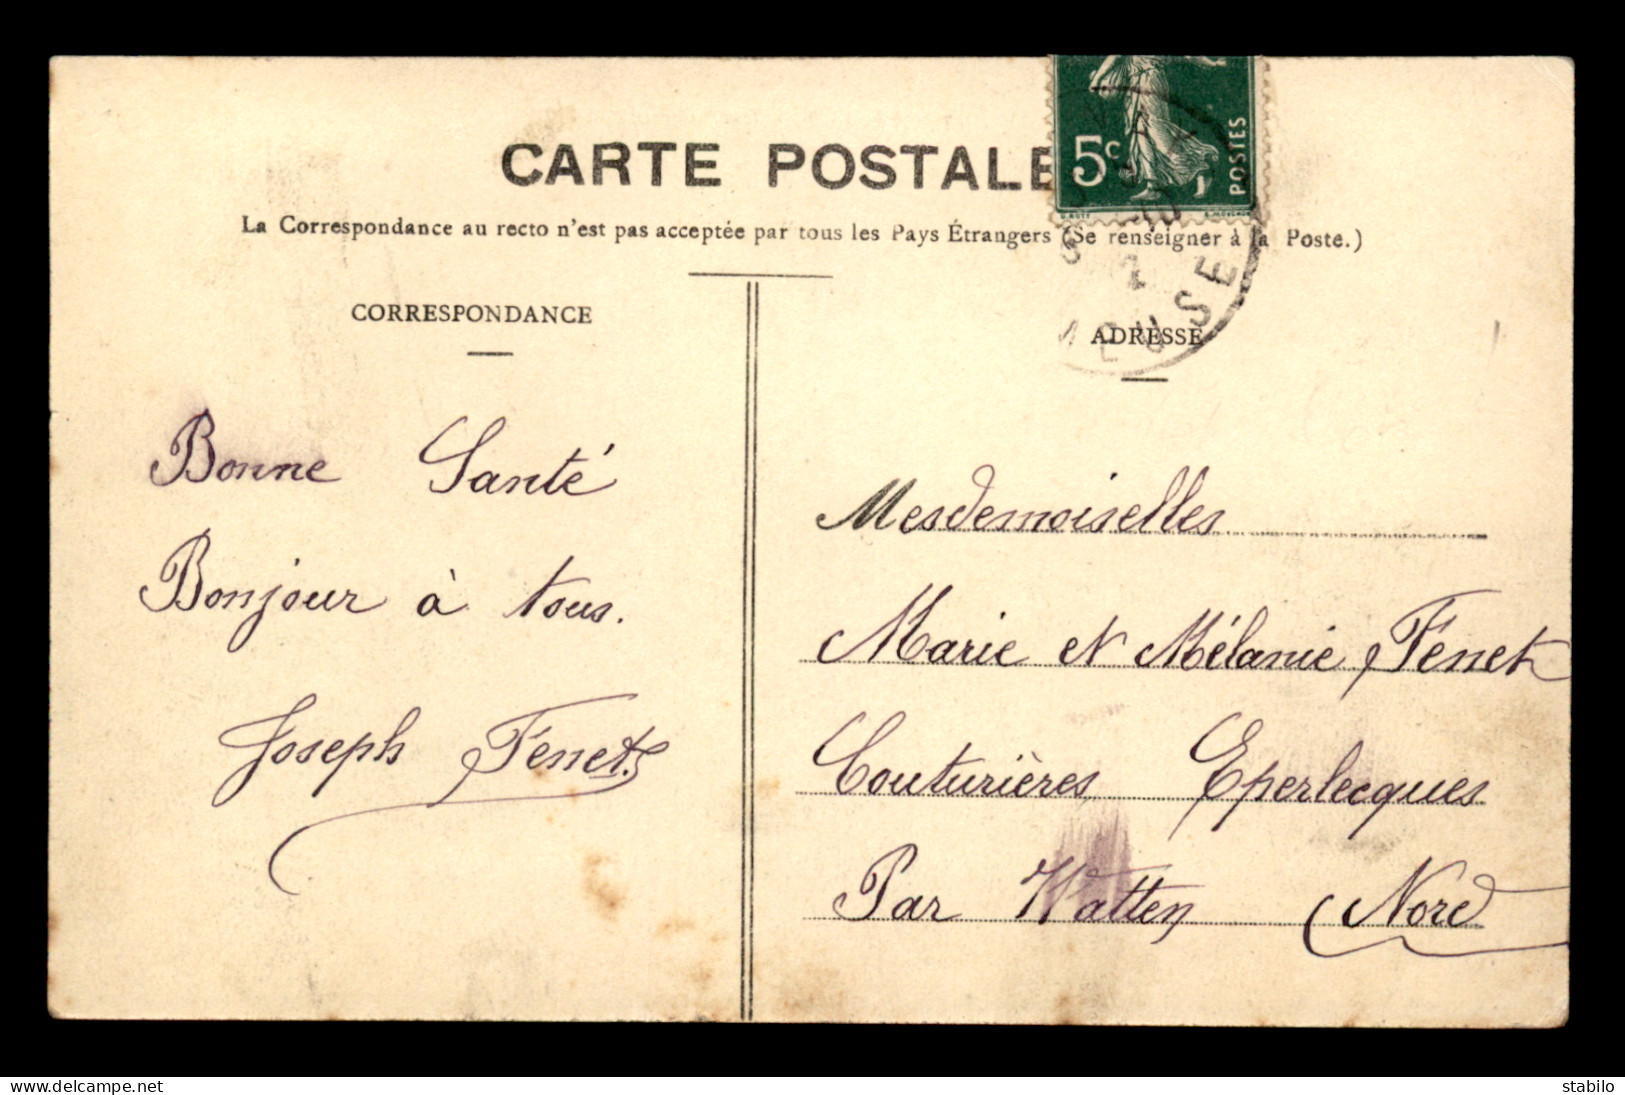 CARTE POSTALE
5c
POSTES
La Correspondance au recto n'est pas acceptée par tous les Pays Étrangers (Se renseigner à la Poste.)
CORRESPONDANCE
ADRESSE
MEUSE
Bonne Santé
Bonjour à tous.
Joseph Fenet
Mesdemoiselles
Marie et Mélanie Fenet
Couturières Eperlecques
Par Watten (Nord
www.delcampe.net
stabilo